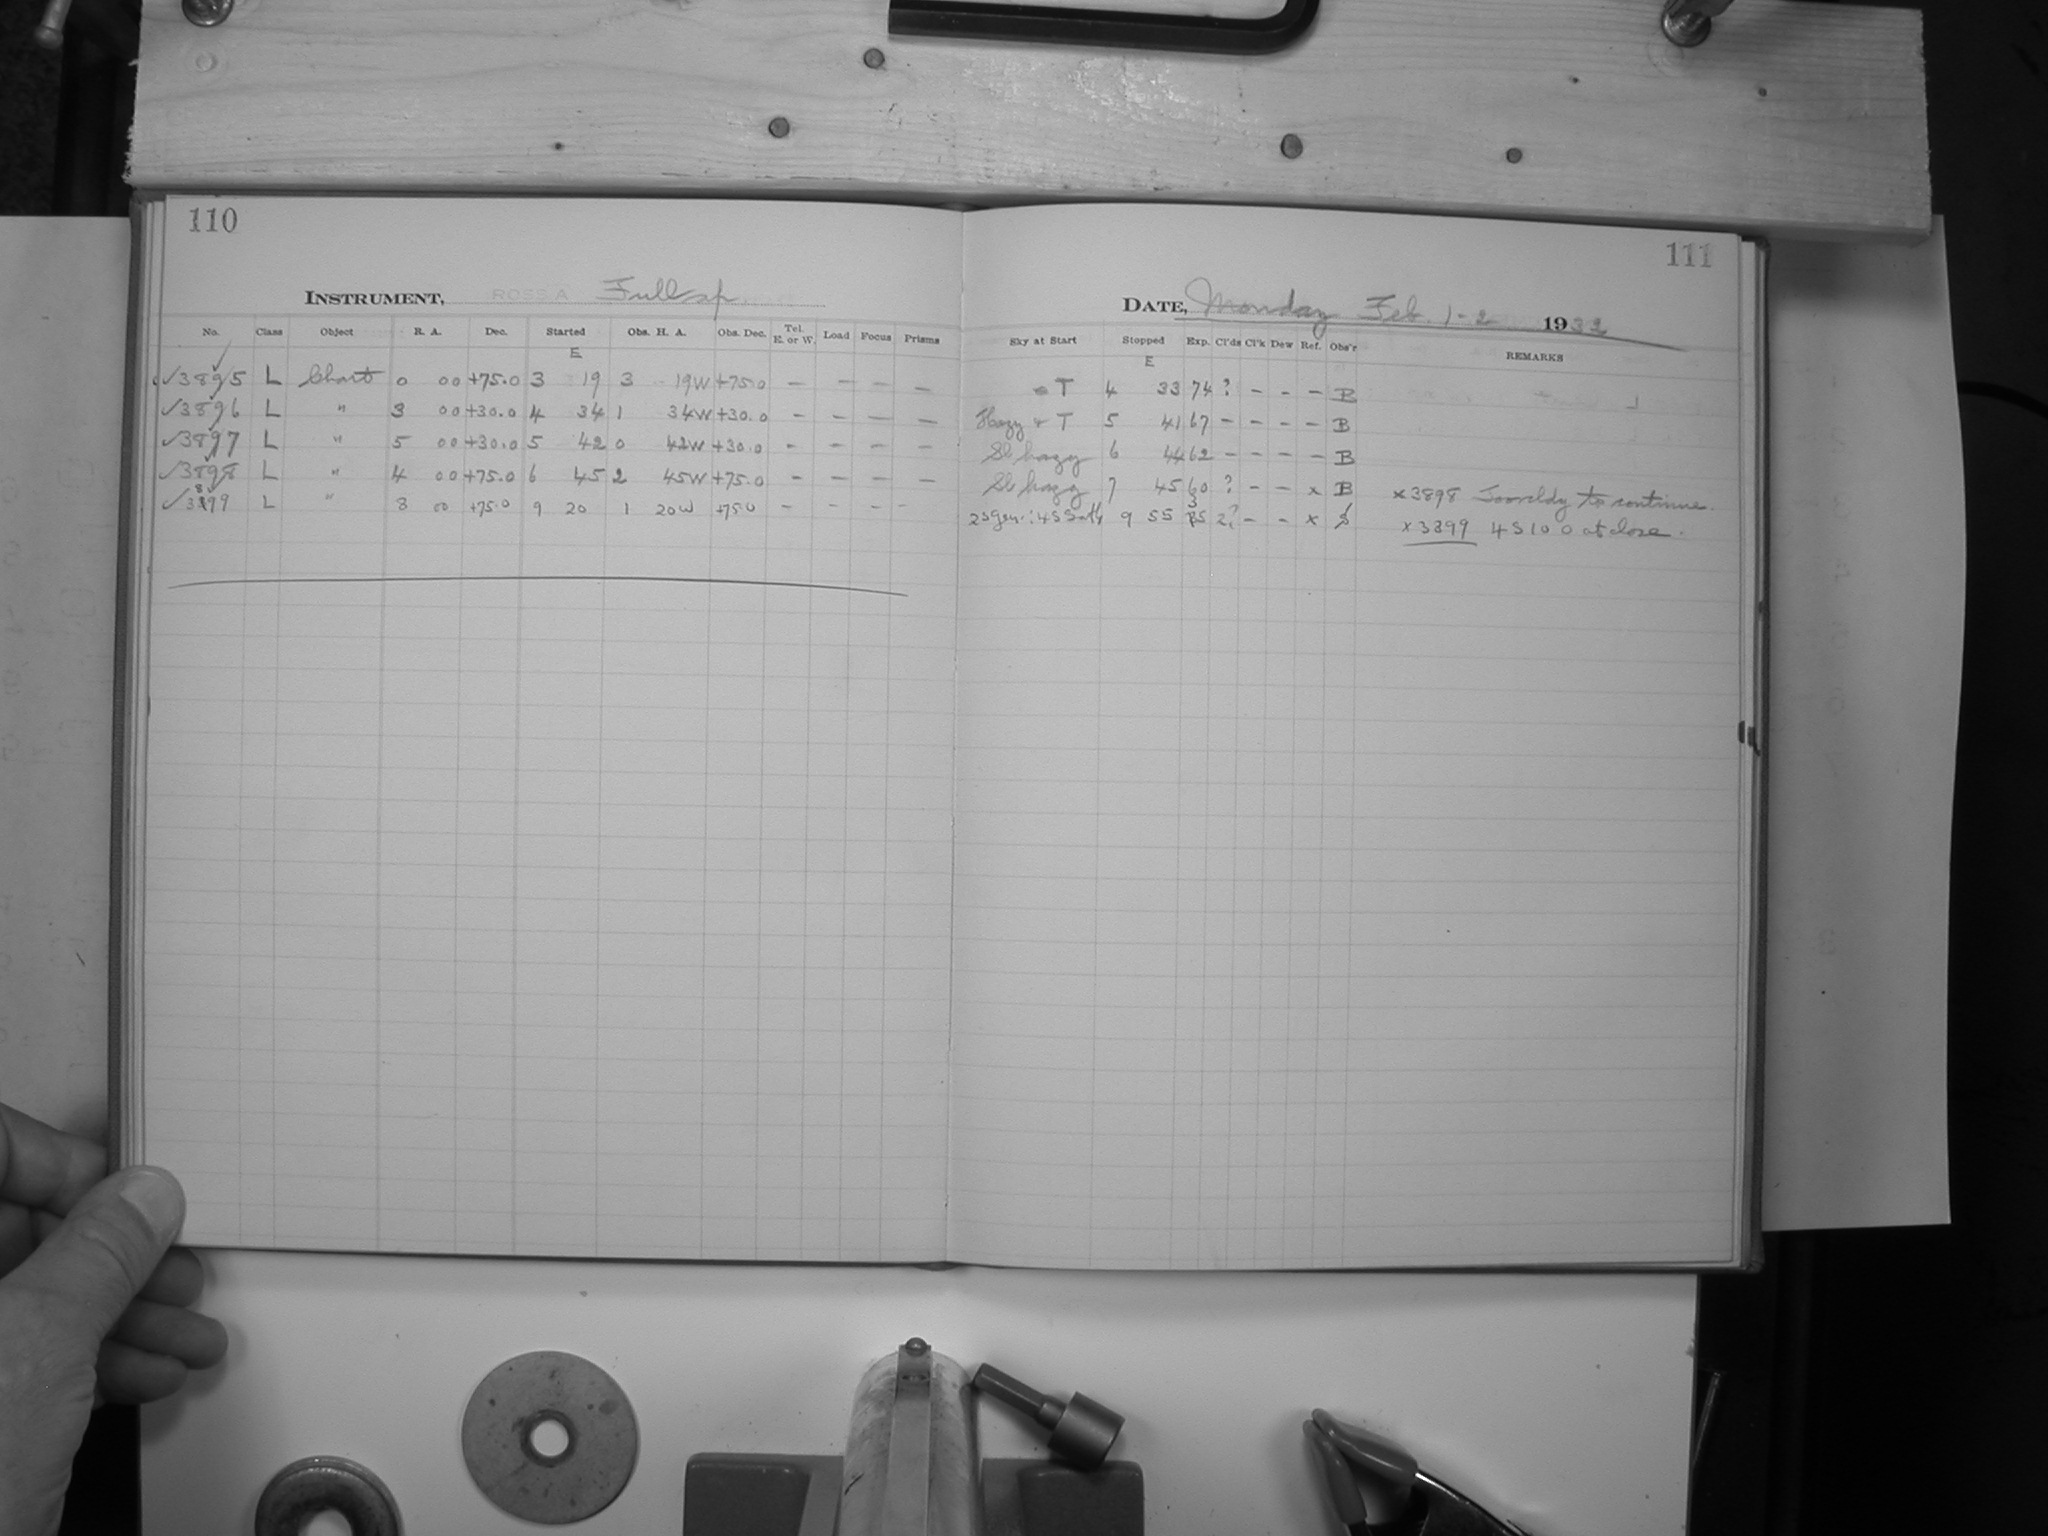 110
INSTRUMENT, ROSS A Full ap.
No. Class Object R. A. Dec. Started Obs. H. A. Obs. Dec. Tel. E. or W. Load Focus Prisms
E
✓3895 L Chart 0 00 +75.0 3 19 3 19W +75.0 – – – –
✓3896 L " 3 00 +30.0 4 34 1 34W +30.0 – – – –
✓3897 L " 5 00 +30.0 5 42 0 42W +30.0 – – – –
✓3898 L " 4 00 +75.0 6 45 2 45W +75.0 – – – –
✓3899 L " 8 00 +75.0 9 20 1 20W +75.0 – – – –
111
DATE, Monday Feb. 1-2 1932
Sky at Start Stopped Exp. Cl'ds Cl'k Dew Ref. Obs'r REMARKS
E
T 4 33 74 ? – – – B
Hazy + T 5 41 67 – – – – B
Sl hazy 6 44 62 – – – – B
Sl hazy 7 45 60 ? – – x B x3898 Too cldy to continue.
9 55 35 2? – – x S x3899 4S100 at close.